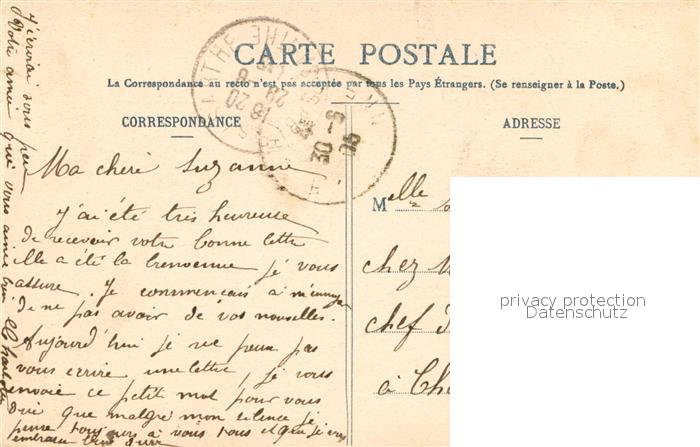 CARTE POSTALE
La Correspondance au recto n'est pas acceptée par tous les Pays Étrangers. (Se renseigner à la Poste.)
CORRESPONDANCE
ADRESSE
Ma cheri Suzanne
J'ai été très heureuse
de recevoir votre bonne lettre
elle a été la bienvenue je vous
assure. Je commencais à m'ennuyer
de ne pas avoir de vos nouvelles.
Aujourd'hui je ne peux pas
vous écrire une lettre, je vous
envoie ce petit mot pour vous
dire que malgré mon silence je
pense toujours à vous tous et que je vous
embrasse bien
J'écrirai sous peu
Votre amie qui vous aime bien
Melle
chez
chef
à Ch
privacy protection
Datenschutz